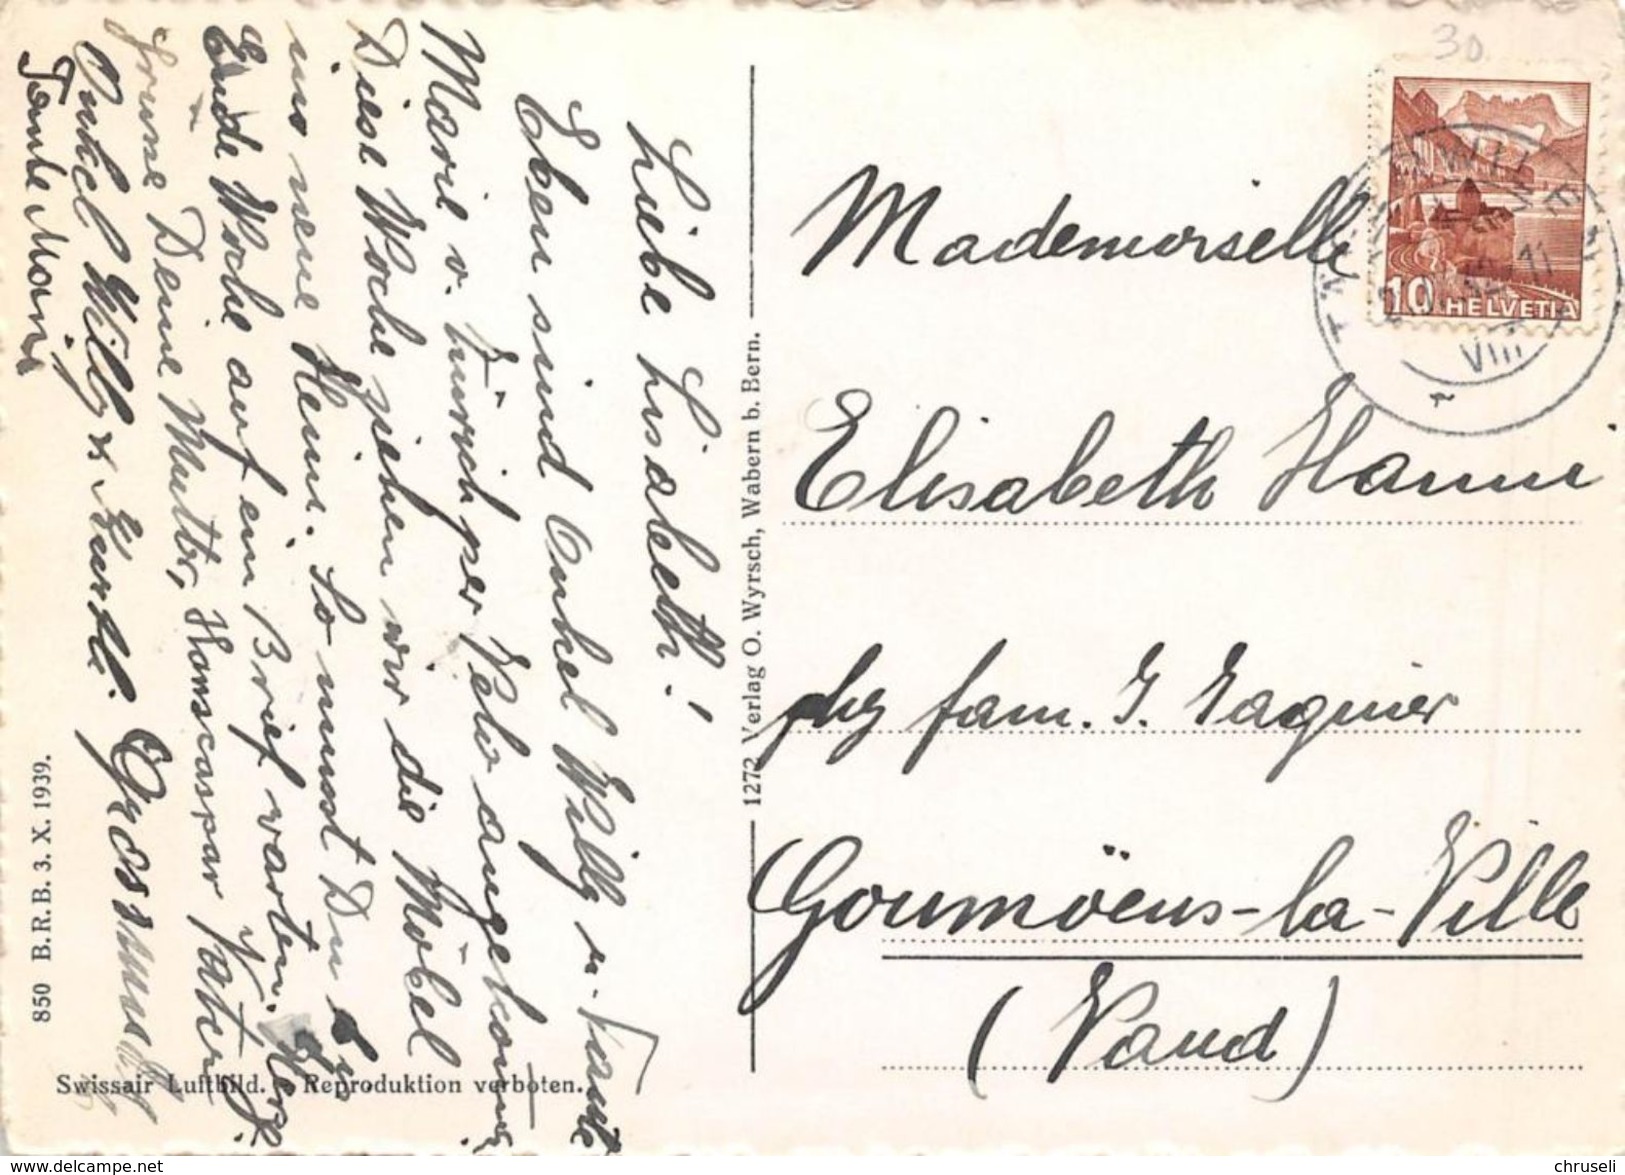 Liebe Lisabeth!
Eben sind Onkel Willy u. Tante
Marie v. Zürich per Velo angekommen
Diese Woche ziehen wir die Möbel
ins neue Heim. So musst Du
Ende Woche auf ein Brief warten. Herz.
Grüsse Deine Mutter, Hanscaspar Vater
Onkel Willy &
Tante Marie
850 B.R.B. 3. X. 1939.
Swissair Luftbild. - Reproduktion verboten.
1272 Verlag O. Wyrsch, Wabern b. Bern.
30.
10 HELVETIA
VIII
Mademoiselle
Elisabeth Hanni
chez fam. J. Gagnier
Goumöens-la-Ville
(Vaud)
www.delcampe.net
chruseli